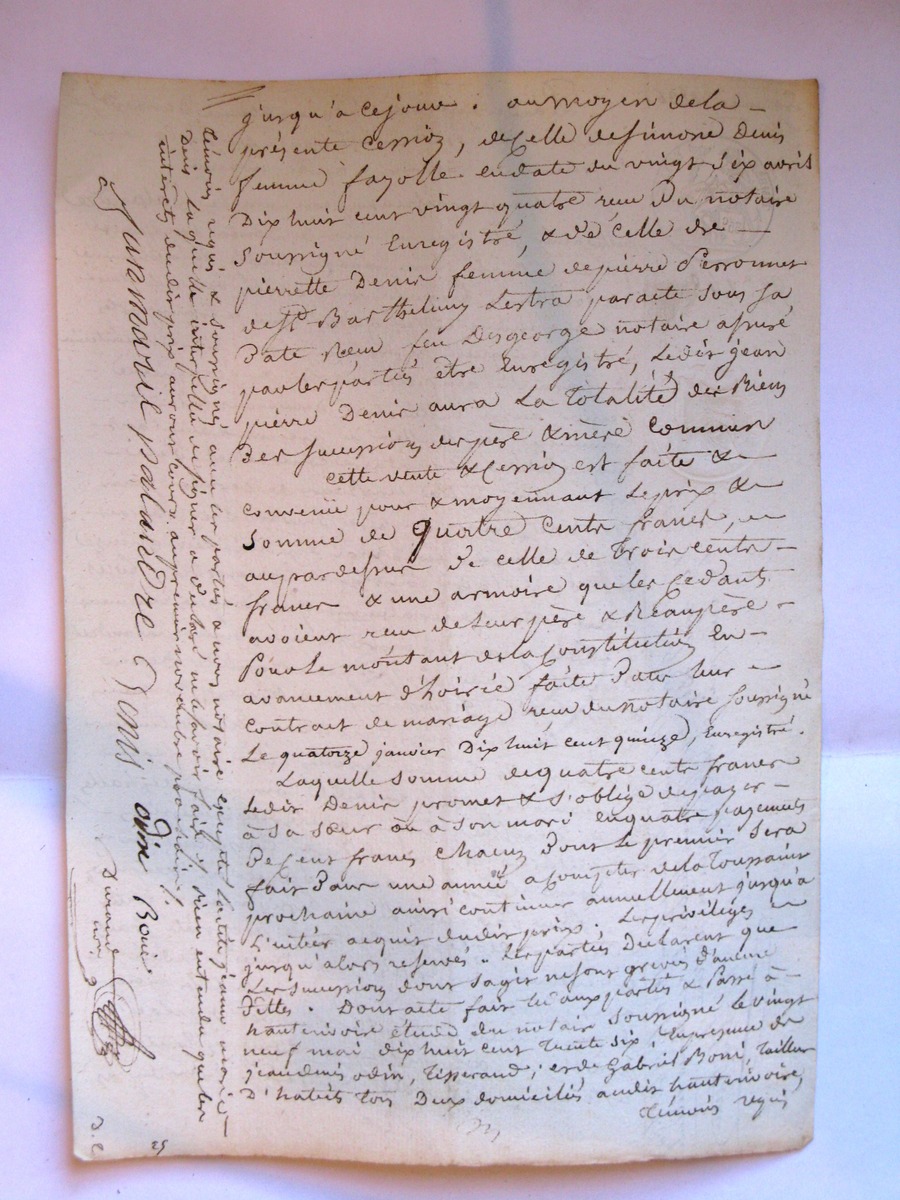 jusqu'a ce jour. au moyen de la
présente Cession, de Celle de Simone Denis
femme fayolle en date du vingt six avril
Dix huit cent vingt quatre recu Du notaire
Soussigné Enregistré, & de Celle de
pierrette Denis femme de pierre Perronnet
de St. Barthelmy Lestra paracte sous sa
Date Recu feu Desgeorge notaire assuré
par les parties être Enregistré, Ledit jean
pierre Denis aura La Totalité des Biens
Des successions des père & mère Commun
cette vente & Cession est faite &
Convenüe pour & moyennant Le prix &
Somme de Quatre Cents francs, en
au pardessus De celle de trois Cents
francs & une armoire que les Cedants
avoient recu de Leur père & Beaupère
Pour Le montant de la Constitution En
avancement d'hoirie faite Dans leur
Contrat de mariage recu du notaire soussigné
Le quatorze janvier Dix huit cent quinze, Enregistré.
Laquelle Somme de quatre Cents francs
Ledit Denis promet & s'oblige de payer
à Sa Sœur ou à Son mari en quatre payements
De Cent francs Chacun Dont le premier Sera
fait Dans une année a Compter de la Toussaint
prochaine ainsi Continuer annuellement jusqu'a
L'entier acquit dudit prix. Les privileges
jusqu'alors reservés. Les parties Declarent que
Les Successions dont sagit ne sont grevées d'aucune
Dettes. Dont acte fait lu aux parties & Passé à
hauterivoire étude du notaire Soussigné le vingt
neuf mai dix huit cent Trente Six, En presence de
jean denis odin, Tisserand, et de Gabriel Boni, Tailleur
D'habits tous Deux domiciliés audit hauterivoire,
témoins requis
témoins requis & soussignés avec les parties & nous notaire excepté Ladite jeanne marie
Denis laquelle interpellée de signer a declaré ne savoir faire et bien entendu que les
interêts dudit prix auront Cours au premier novembre prochain
Jura marie palandre Denis odin Boni
Durand
nre
25